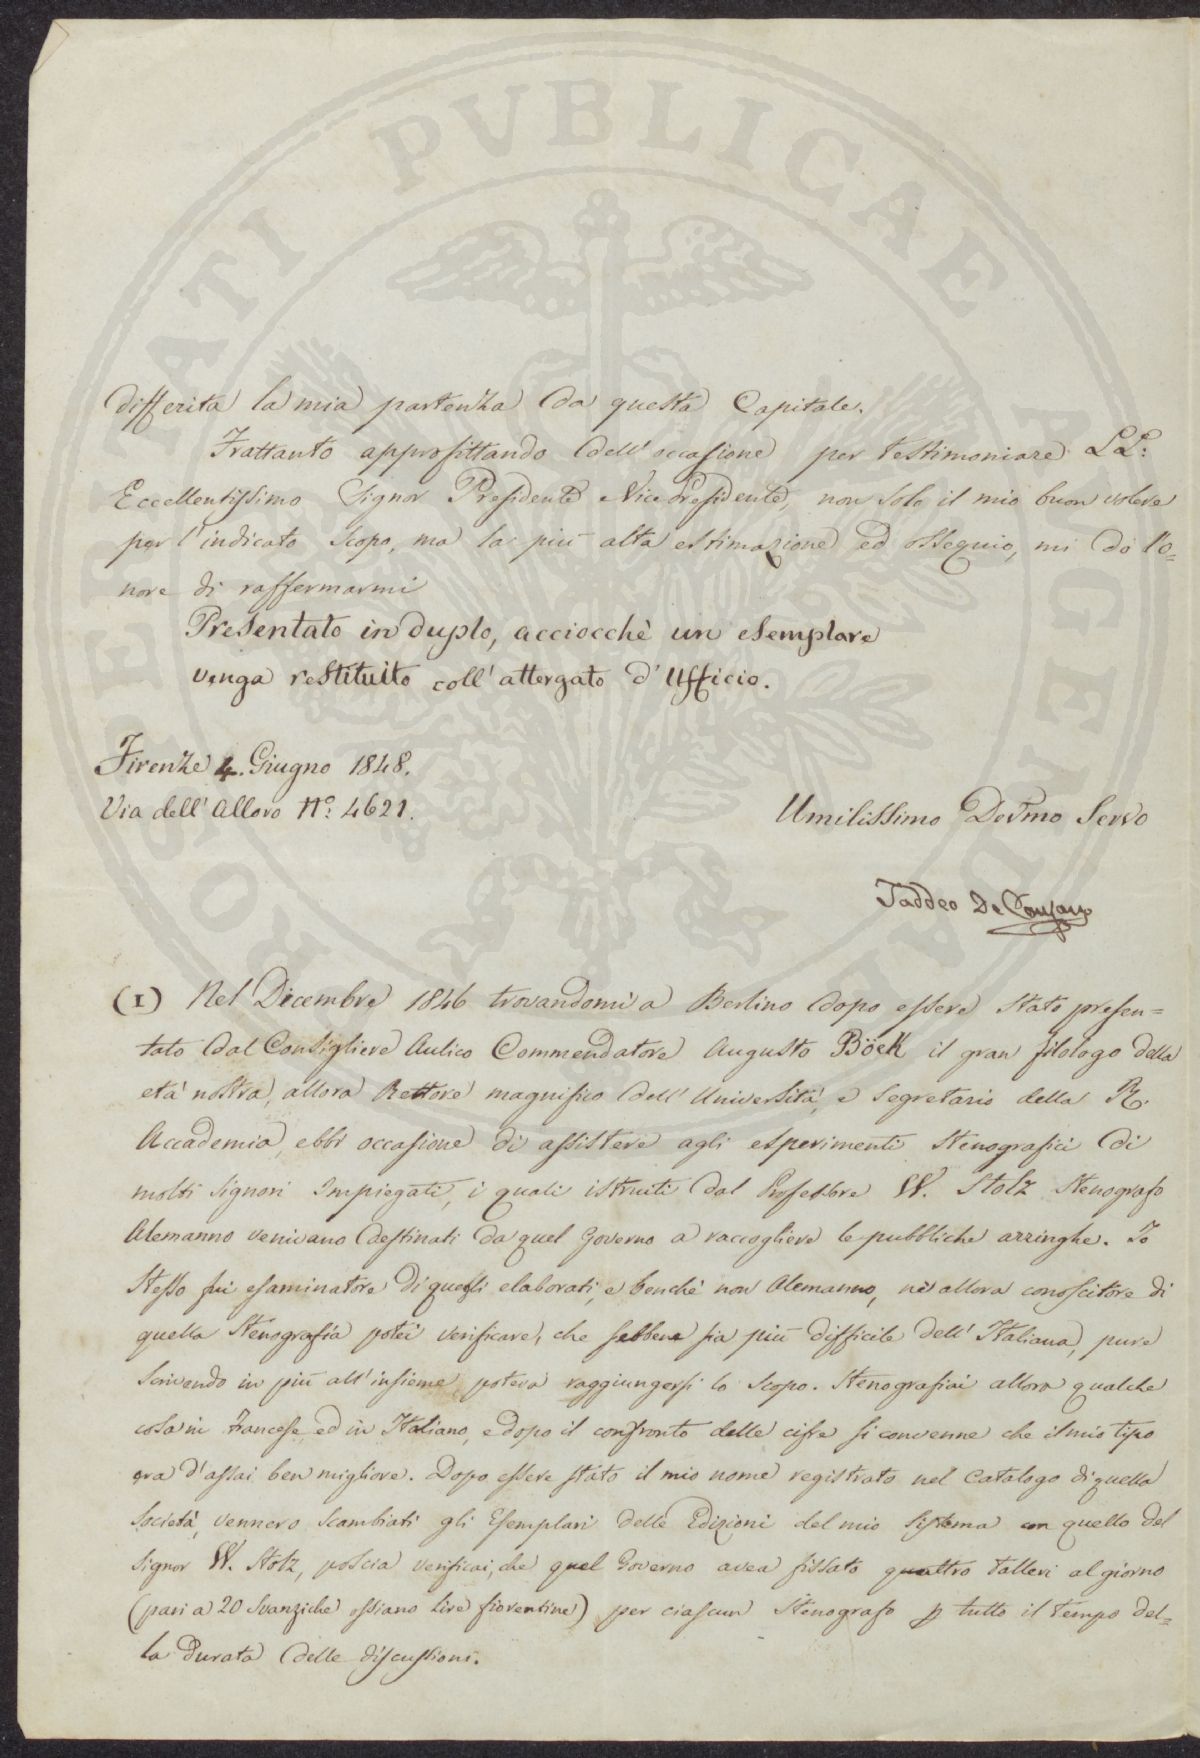 PROSPERITATI PVBLICAE AVGENDAE
differita la mia partenza da questa Capitale.
Trattanto approfittando dell'occasione per testimoniare LL:
Eccellentissimo Signor Presidente e Vice Presidente, non solo il mio buon volere
per l'indicato scopo, ma la più alta estimazione ed ossequio, mi do l'o=
nore di raffermarmi
Presentato in duplo, acciocchè un esemplare
venga restituito coll'attergato d'Ufficio.
Firenze 4. Giugno 1848.
Via dell'Alloro No: 4621.
Umilissimo Devmo Servo
Taddeo De
(1) Nel Dicembre 1846 trovandomi a Berlino dopo essere stato presen=
tato dal Consigliere Aulico Commendatore Augusto Böck il gran filologo della
età nostra, allora Rettore magnifico dell'Università, e Segretario della R.
Accademia, ebbi occasione di assistere agli esperimenti stenografici di
molti Signori Impiegati, i quali istruiti dal Professore W. Stolz Stenografo
Alemanno venivano destinati da quel Governo a raccogliere le pubbliche arringhe. Io
stesso fui esaminatore di quegli elaborati, e benchè non Alemanno, nè allora conoscitore di
quella Stenografia potei verificare, che sebbene sia più difficile dell'Italiana, pure
scrivendo in più all'insieme poteva raggiungersi lo scopo. Stenografiai allora qualche
cosa in Francese ed in Italiano, e dopo il confronto delle cifre si convenne che il mio tipo
era d'assai ben migliore. Dopo essere stato il mio nome registrato nel Catalogo di quella
Società, vennero scambiati gli Esemplari delle Edizioni del mio sistema con quello del
Signor W. Stolz, poscia verificai, che quel Governo avea fissato quattro talleri al giorno
(pari a 20 Svanziche ossiano Lire fiorentine) per ciascun Stenografo p tutto il tempo del=
la durata delle discussioni.